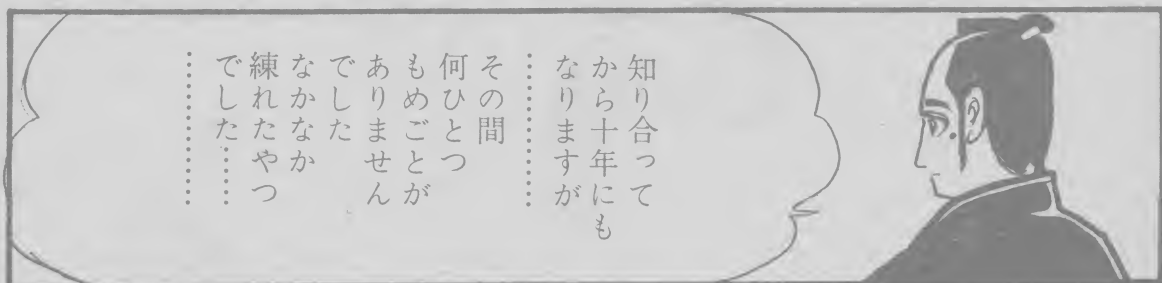 知り合って
から十年にも
なりますが
………
その間
何ひとつ
もめごとが
ありません
でした
なかなか
練れたやつ
でした……
………